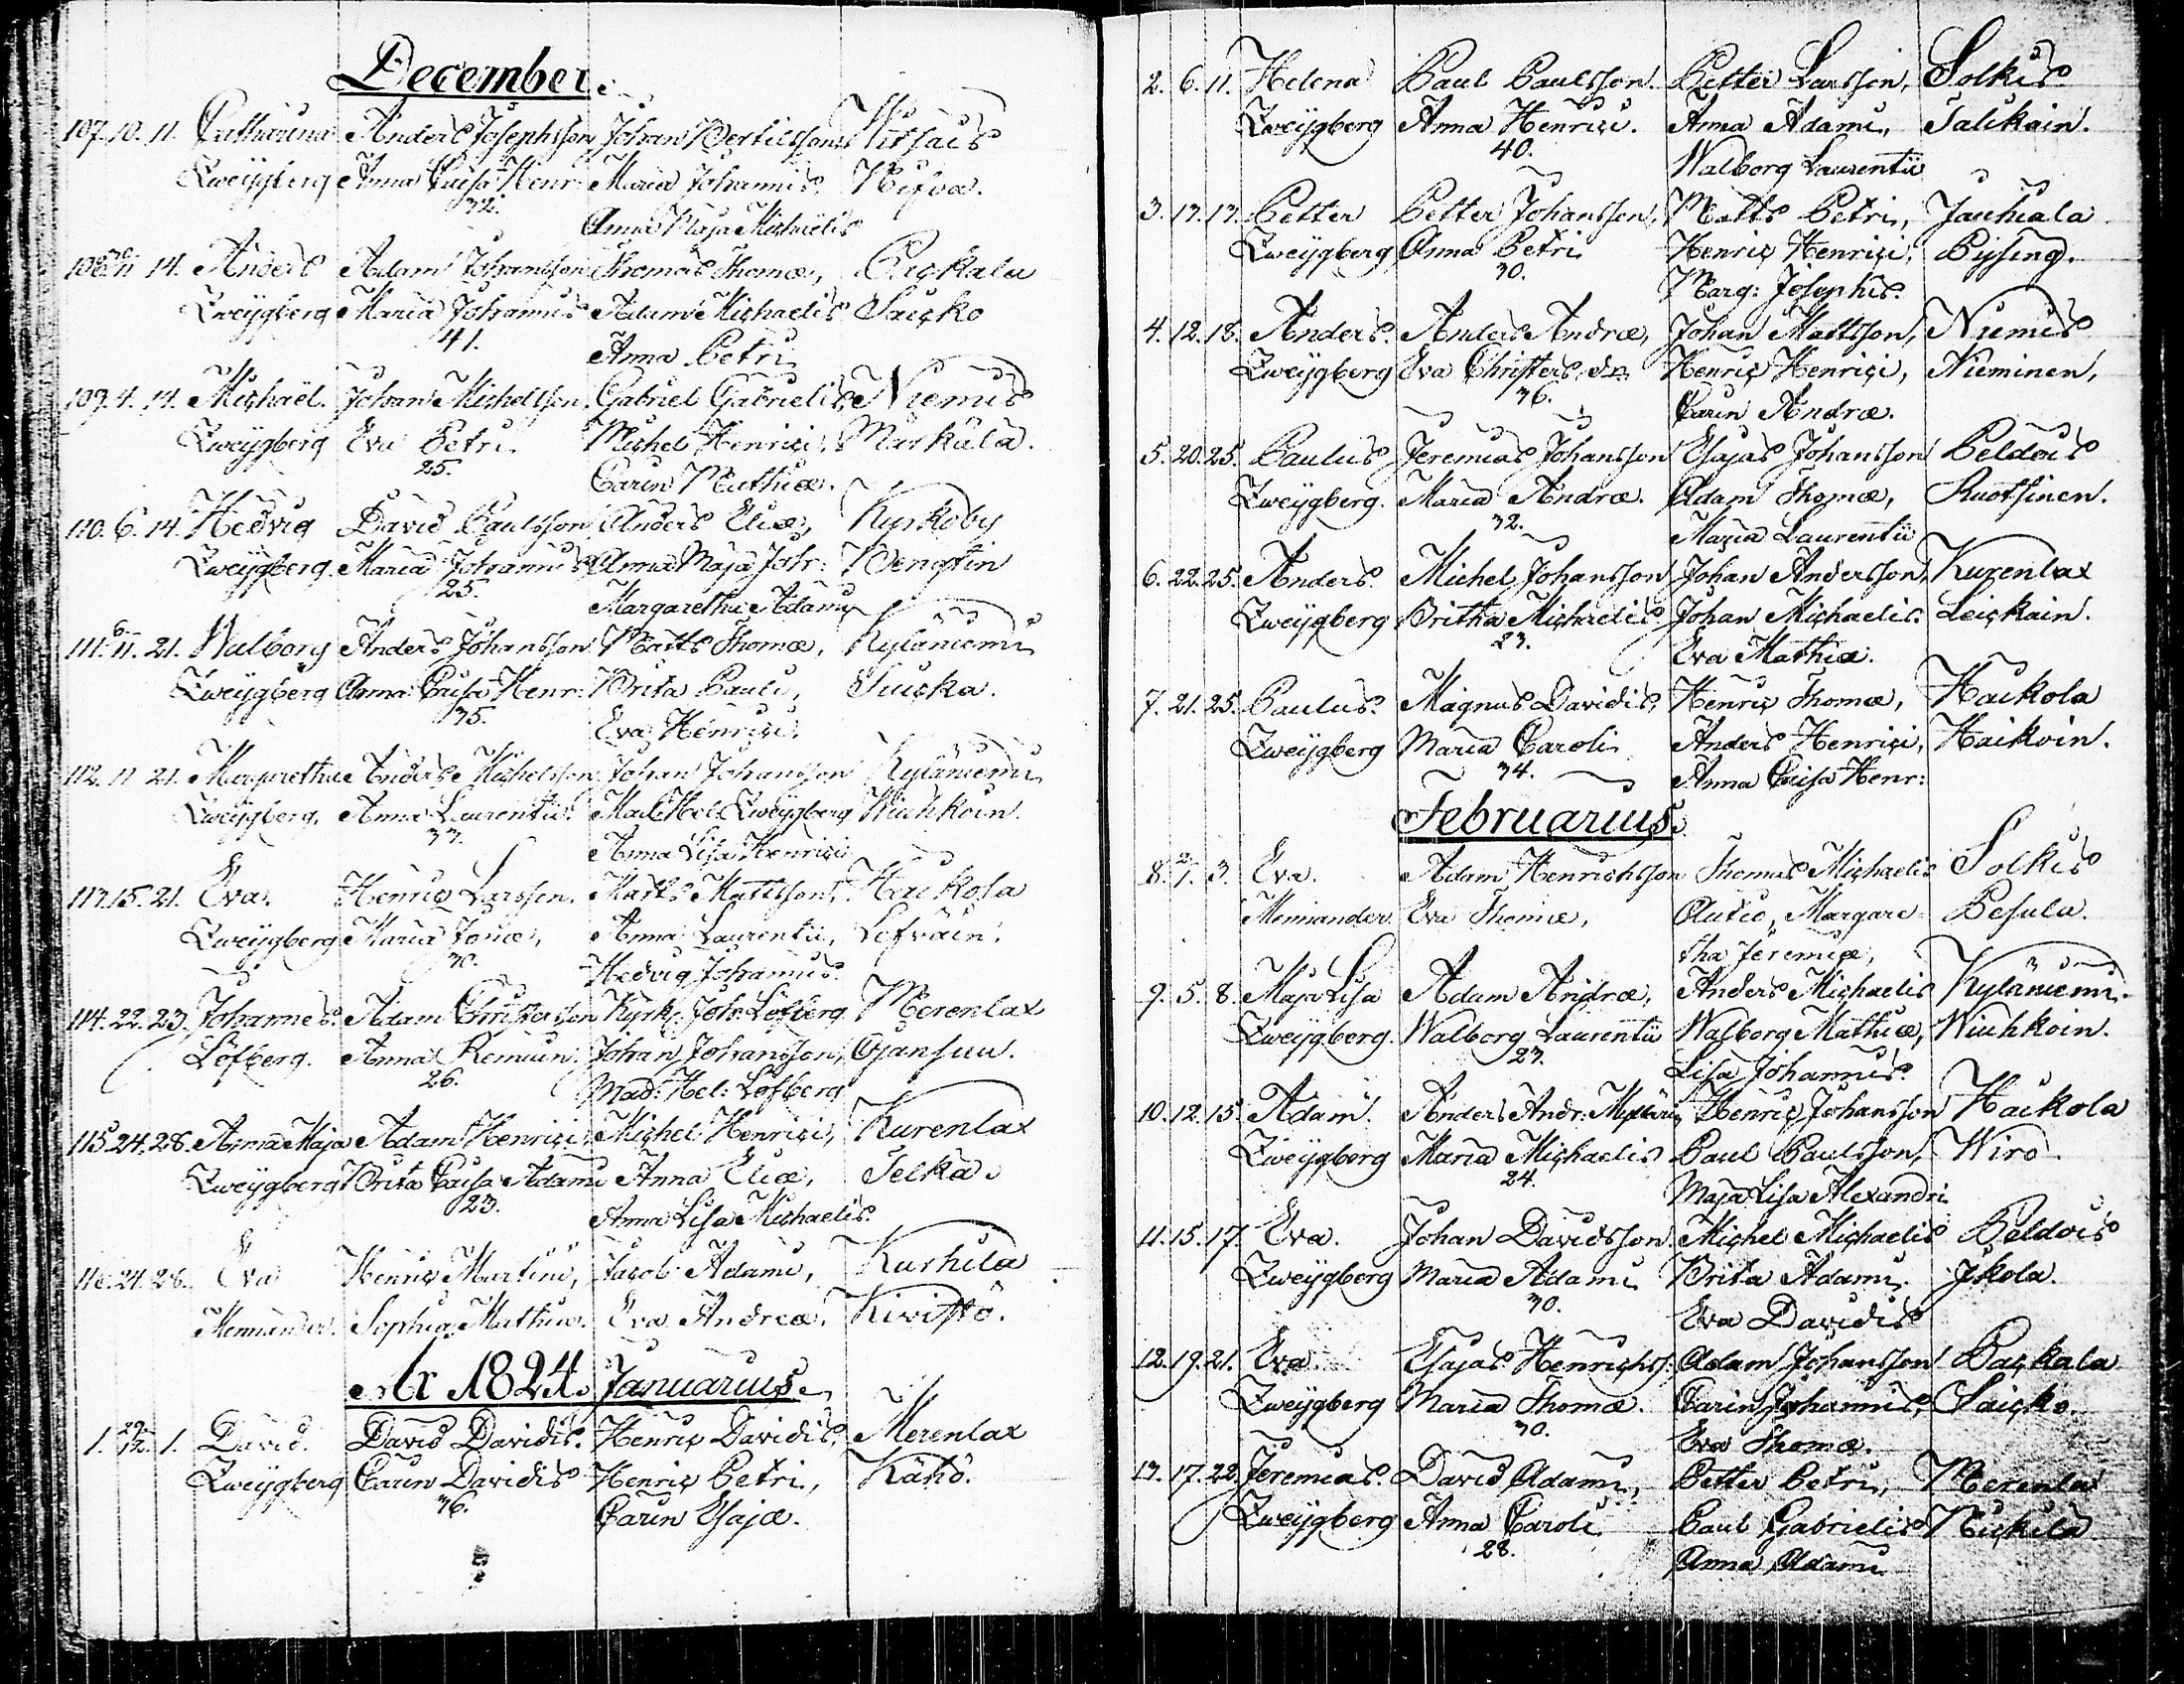 December.
107. 10. 11. Catharina Anders Josephsson Johan Bertilsson Witsais
Zweygberg Anna Caisa Henr: Maria Johannis, Nifva.
32. Anna Maja Michaëlis
108. 11 14. Anders Adam Johansson Thomas Thomæ, Packala
Zweygberg Maria Johannis Adam Michaelis Saicko
41. Anna Petri
109. 4. 14. Michaël. Johan Michelsson. Gabriel Gabrielis, Niemis
Zweygberg Eva Petri. Michel Henrici, Markala.
25. Carin Mathiæ.
110. 6. 14. Hedvig David Paulsson Anders Eliæ, Kyrkoby
Zweygberg. Maria Johannis Anna Maja Joh: Bengtin
25. Margaretha Adami
111. 6/11. 21. Walborg Anders Johansson Matts Thomæ, Kyläniemi
Zweygberg Anna Caisa Henr: Brita Pauli, Suicka.
35. Eva Henrici.
112. 11 21. Margaretha Anders Michelsson Johan Johansson Kyläniemi
Zweygberg. Anna Laurentii. Mad: Hel: Zweygberg Wiuhkoin.
33. Anna Lisa Henrici
113. 15. 21. Eva. Henric Larsson. Matts Mattsson, Haikola
Zweygberg Maria Jonæ, Anna Laurentii, Lefväin.
30. Hedvig Johannis.
114. 22. 23. Johannes. Adam Christersson Kyrk: Joh: Löfberg Merenlax
Löfberg. Anna Remuin. Johan Johansson, Ojansuu.
26. Mad: Hel: Löfberg
115. 24. 28. Anna Maja Adam Henrici Michel Henrici, Kurenlax
Zweygberg Brita Caisa Adami Anna Eliæ, Selka.
23. Anna Lisa Michaelis.
116. 24. 28. Eva Henric Martini, Jacob Adami, Kurkila
Mennander. Sophia Mathiæ. Eva Andreæ. Kivistö.
År 1824. Januarius.
1. 29/12. 1. David. David Davidis. Henric Davidis, Merenlax
Zweygberg Carin Davidis Henric Petri, Kätkö.
36. Carin Esajæ.
2. 6. 11. Helena Paul Paulsson. Petter Larsson, Solkis
Zweygberg Anna Henrici. Anna Adami, Salikain.
40. Walborg Laurentii
3. 13. 17. Petter Petter Johansson, Matts Petri, Jauhiala
Zweygberg Anna Petri Henric Henrici, Bysing.
30. Marg: Josephis.
4. 12. 18. Anders. Anders Andræ, Johan Mattsson, Niemis
Zweygberg Eva Christers dr Henric Henrici, Nieminen,
36. Carin Andræ.
5. 20. 25. Paulus Jeremias Johansson Esajas Johansson Peldois
Zweygberg. Maria Andræ. Adam Thomæ, Ruotsinen.
32. Maria Laurentii
6. 22. 25. Anders. Michel Johansson Johan Andersson, Kurenlax
Zweygberg Britha Michaelis Johan Michaelis. Leickain.
23. Eva Mathiæ.
7. 21. 25. Paulus. Magnus Davidis, Henric Thomæ, Haikola
Zweygberg Maria Caroli Anders Henrici, Haikoin.
34. Anna Caisa Henr:
Februarius.
8. 2/1. 3. Eva. Adam Henrichsson Thomas Michaelis Solkis
Mennander. Eva Thomæ, Autio, Margare- Pesula.
tha Jeremiæ,
9. 5. 8. Maja Lisa Adam Andræ, Anders Michaelis Kyläniemi.
Zweygberg. Walborg Laurentii Walborg Mathiæ, Wiuhkoin.
27. Lisa Johannis.
10. 12. 15. Adam. Anders Andr: Henric Johansson Haikola
Zweygberg Maria Michaelis Paul Paulsson, Wiro.
24. Maja Lisa Alexandri
11. 15. 17. Eva. Johan Davidsson. Michel Michaelis Peldois
Zweygberg Maria Adami Brita Adami. Jkola.
30. Eva Davidis
12. 19. 21. Eva. Esajas Henrichs: Adam Johansson Packala
Zweygberg Maria Thomæ. Carin Johannis, Saicko.
30. Eva Thomæ.
13. 17. 22. Jeremias. David Adami, Petter Petri, Merenlax
Zweygberg Anna Caroli. Paul Gabrielis Nickilä
28. Anna Adami